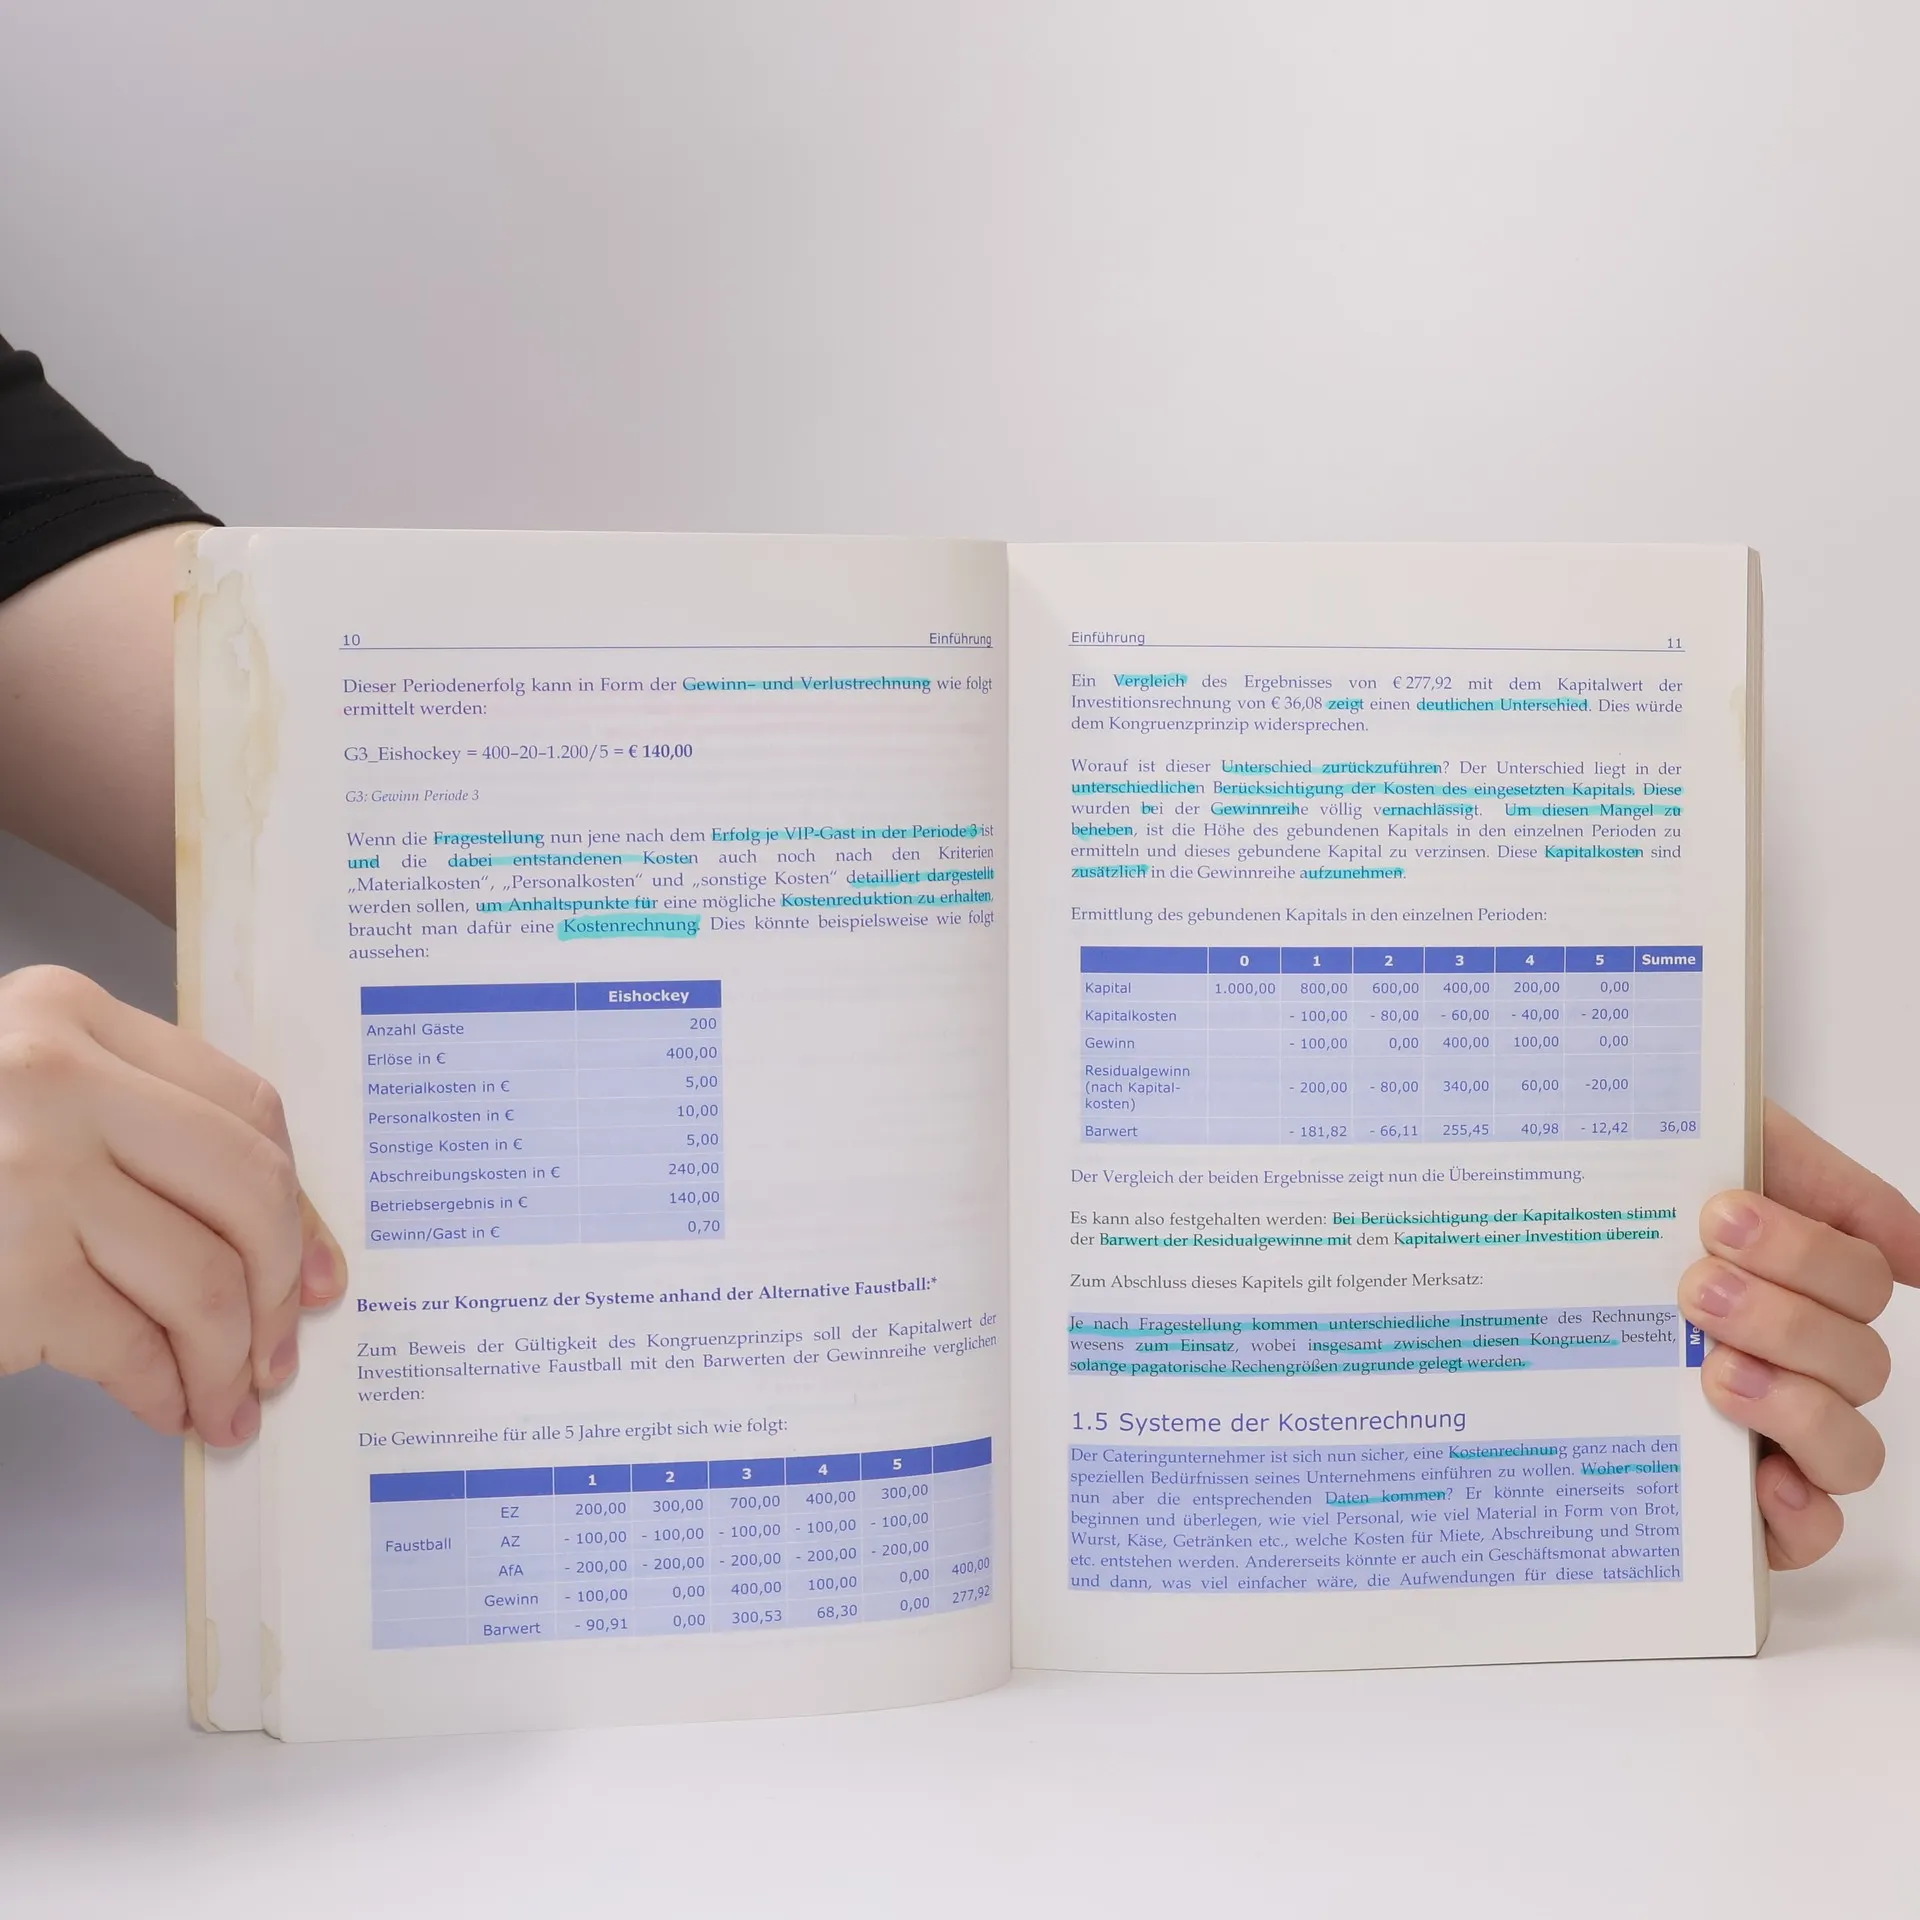 10
Einführung
Dieser Periodenerfolg kann in Form der Gewinn– und Verlustrechnung wie folgt
ermittelt werden:
G3_Eishockey = 400–20–1.200/5 = € 140,00
G3: Gewinn Periode 3
Wenn die Fragestellung nun jene nach dem Erfolg je VIP-Gast in der Periode 3 ist
und die dabei entstandenen Kosten auch noch nach den Kriterien
„Materialkosten“, „Personalkosten“ und „sonstige Kosten“ detailliert dargestellt
werden sollen, um Anhaltspunkte für eine mögliche Kostenreduktion zu erhalten,
braucht man dafür eine Kostenrechnung. Dies könnte beispielsweise wie folgt
aussehen:
Eishockey
Anzahl Gäste 200
Erlöse in € 400,00
Materialkosten in € 5,00
Personalkosten in € 10,00
Sonstige Kosten in € 5,00
Abschreibungskosten in € 240,00
Betriebsergebnis in € 140,00
Gewinn/Gast in € 0,70
Beweis zur Kongruenz der Systeme anhand der Alternative Faustball:*
Zum Beweis der Gültigkeit des Kongruenzprinzips soll der Kapitalwert der
Investitionsalternative Faustball mit den Barwerten der Gewinnreihe verglichen
werden:
Die Gewinnreihe für alle 5 Jahre ergibt sich wie folgt:
1 2 3 4 5
EZ 200,00 300,00 700,00 400,00 300,00
Faustball AZ - 100,00 - 100,00 - 100,00 - 100,00 - 100,00
AfA - 200,00 - 200,00 - 200,00 - 200,00 - 200,00
Gewinn - 100,00 0,00 400,00 100,00 0,00 400,00
Barwert - 90,91 0,00 300,53 68,30 0,00 277,92
Einführung
11
Ein Vergleich des Ergebnisses von € 277,92 mit dem Kapitalwert der
Investitionsrechnung von € 36,08 zeigt einen deutlichen Unterschied. Dies würde
dem Kongruenzprinzip widersprechen.
Worauf ist dieser Unterschied zurückzuführen? Der Unterschied liegt in der
unterschiedlichen Berücksichtigung der Kosten des eingesetzten Kapitals. Diese
wurden bei der Gewinnreihe völlig vernachlässigt. Um diesen Mangel zu
beheben, ist die Höhe des gebundenen Kapitals in den einzelnen Perioden zu
ermitteln und dieses gebundene Kapital zu verzinsen. Diese Kapitalkosten sind
zusätzlich in die Gewinnreihe aufzunehmen.
Ermittlung des gebundenen Kapitals in den einzelnen Perioden:
0 1 2 3 4 5 Summe
Kapital 1.000,00 800,00 600,00 400,00 200,00 0,00
Kapitalkosten - 100,00 - 80,00 - 60,00 - 40,00 - 20,00
Gewinn - 100,00 0,00 400,00 100,00 0,00
Residualgewinn
(nach Kapital- - 200,00 - 80,00 340,00 60,00 -20,00
kosten)
Barwert - 181,82 - 66,11 255,45 40,98 - 12,42 36,08
Der Vergleich der beiden Ergebnisse zeigt nun die Übereinstimmung.
Es kann also festgehalten werden: Bei Berücksichtigung der Kapitalkosten stimmt
der Barwert der Residualgewinne mit dem Kapitalwert einer Investition überein.
Zum Abschluss dieses Kapitels gilt folgender Merksatz:
Je nach Fragestellung kommen unterschiedliche Instrumente des Rechnungs-
wesens zum Einsatz, wobei insgesamt zwischen diesen Kongruenz besteht,
solange pagatorische Rechengrößen zugrunde gelegt werden.
1.5 Systeme der Kostenrechnung
Der Cateringunternehmer ist sich nun sicher, eine Kostenrechnung ganz nach den
speziellen Bedürfnissen seines Unternehmens einführen zu wollen. Woher sollen
nun aber die entsprechenden Daten kommen? Er könnte einerseits sofort
beginnen und überlegen, wie viel Personal, wie viel Material in Form von Brot,
Wurst, Käse, Getränken etc., welche Kosten für Miete, Abschreibung und Strom
etc. entstehen werden. Andererseits könnte er auch ein Geschäftsmonat abwarten
und dann, was viel einfacher wäre, die Aufwendungen für diese tatsächlich